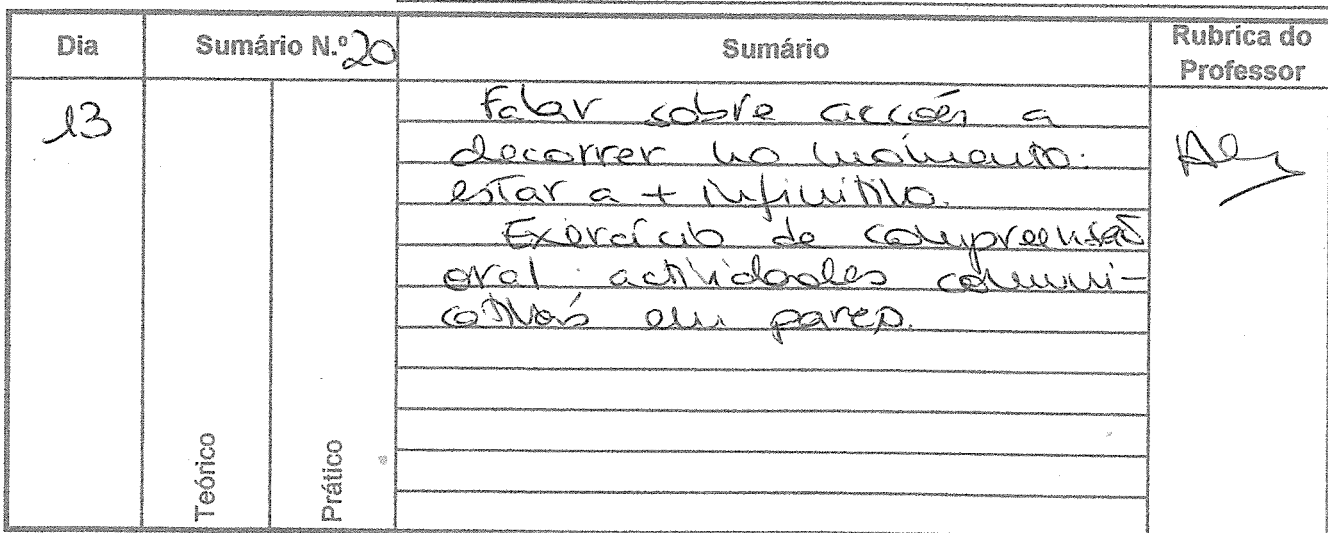 Dia
Sumário N.º 20
Sumário
Rubrica do
Professor
13
Falar sobre acções a
decorrer no momento:
estar a + infinitivo.
Exercício de compreensão
oral. actividades comuni-
cativas em pares.
Teórico
Prático